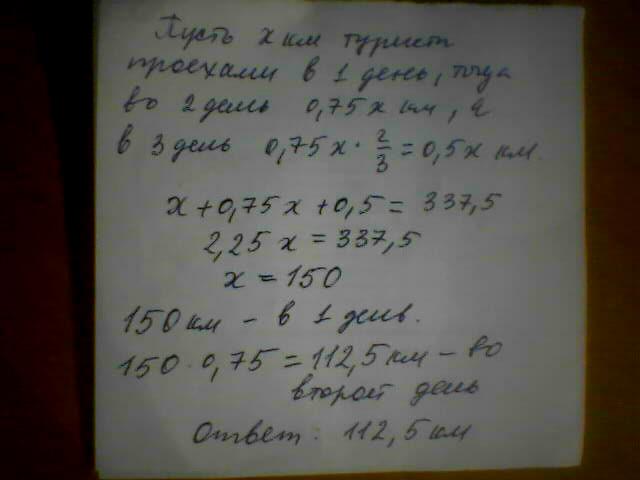 Пусть x км туристы
проехали в 1 день, тогда
во 2 день 0,75x км, а
в 3 день 0,75x · 2/3 = 0,5x км.
x + 0,75x + 0,5 = 337,5
2,25x = 337,5
x = 150
150 км - в 1 день.
150 · 0,75 = 112,5 км - во
второй день
Ответ: 112,5 км